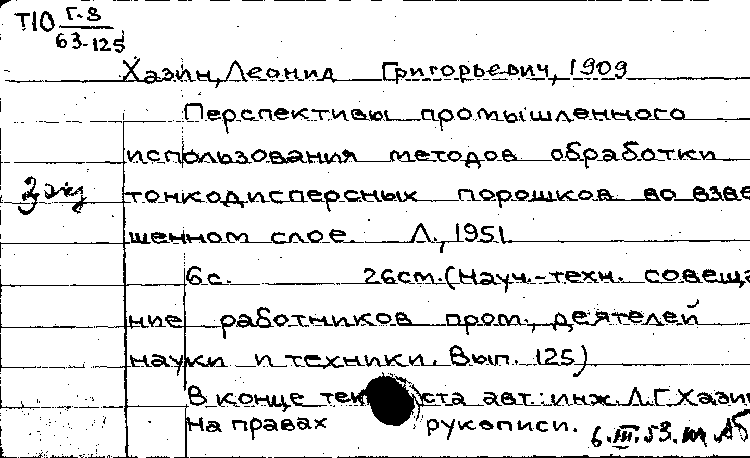 Т10 Г-8
63-125
Хазин, Леонид Григорьевич, 1909
Перспективы промышленного
использования методов обработки
3 экз
тонкодисперсных порошков во взве
шенном слое. Л., 1951.
6с. 26см. (Науч.-техн. совеща
ние работников пром., деятелей
науки и техники. Вып. 125)
В конце тек ста авт.: инж. Л.Г. Хазин
На правах рукописи.
6.III.53.